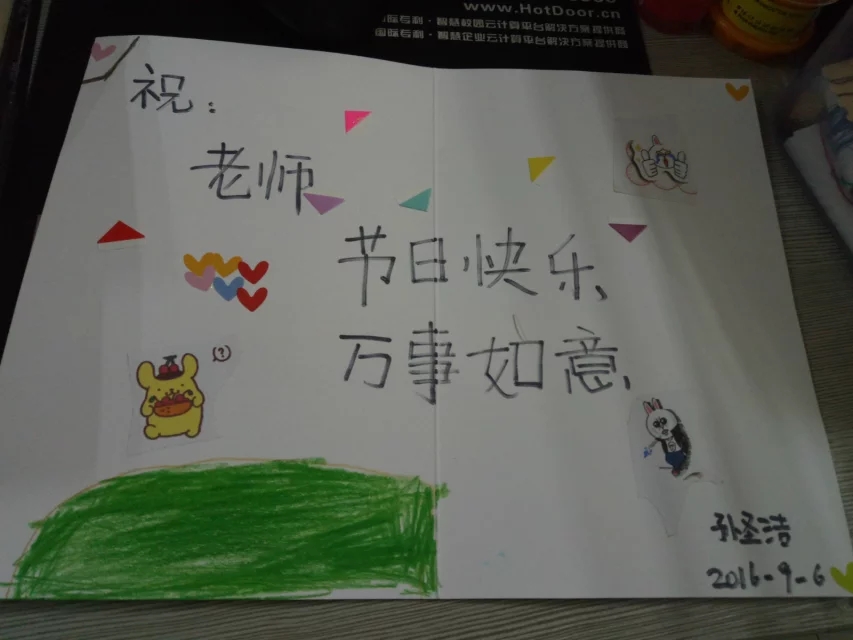 www.HotDoor.cn
国际专利·智慧校园云计算平台解决方案提供商
国际专利·智慧企业云计算平台解决方案提供商
祝：
老师
节日快乐、
万事如意、
?
孙圣洁
2016-9-6